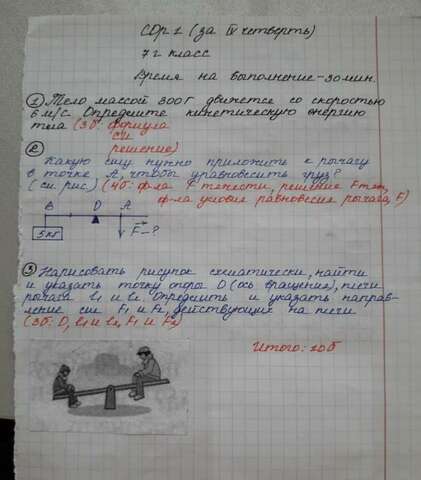 СОр 1 (за IV четверть)
7 г класс
Время на выполнение-30мин.
① Тело массой 300г движется со скоростью
6 м/с. Определите кинетическую энергию
тела (3б: формула
СИ
решение)
②
Какую силу нужно приложить к рычагу
в точке А, чтобы уравновесить груз?
(см. рис) (4б: ф-ла F тяжести, решение Fтяж,
ф-ла условия равновесия рычага, F)
В О А
5кг F-?
③ Нарисовать рисунок схематически, найти
и указать точку опоры О (ось вращения), плечи
рычага l₁ и l₂. Определить и указать направ-
ление сил F₁ и F₂, действующих на плечи
(3б: О, l₁ и l₂, F₁ и F₂)
Итого: 10б